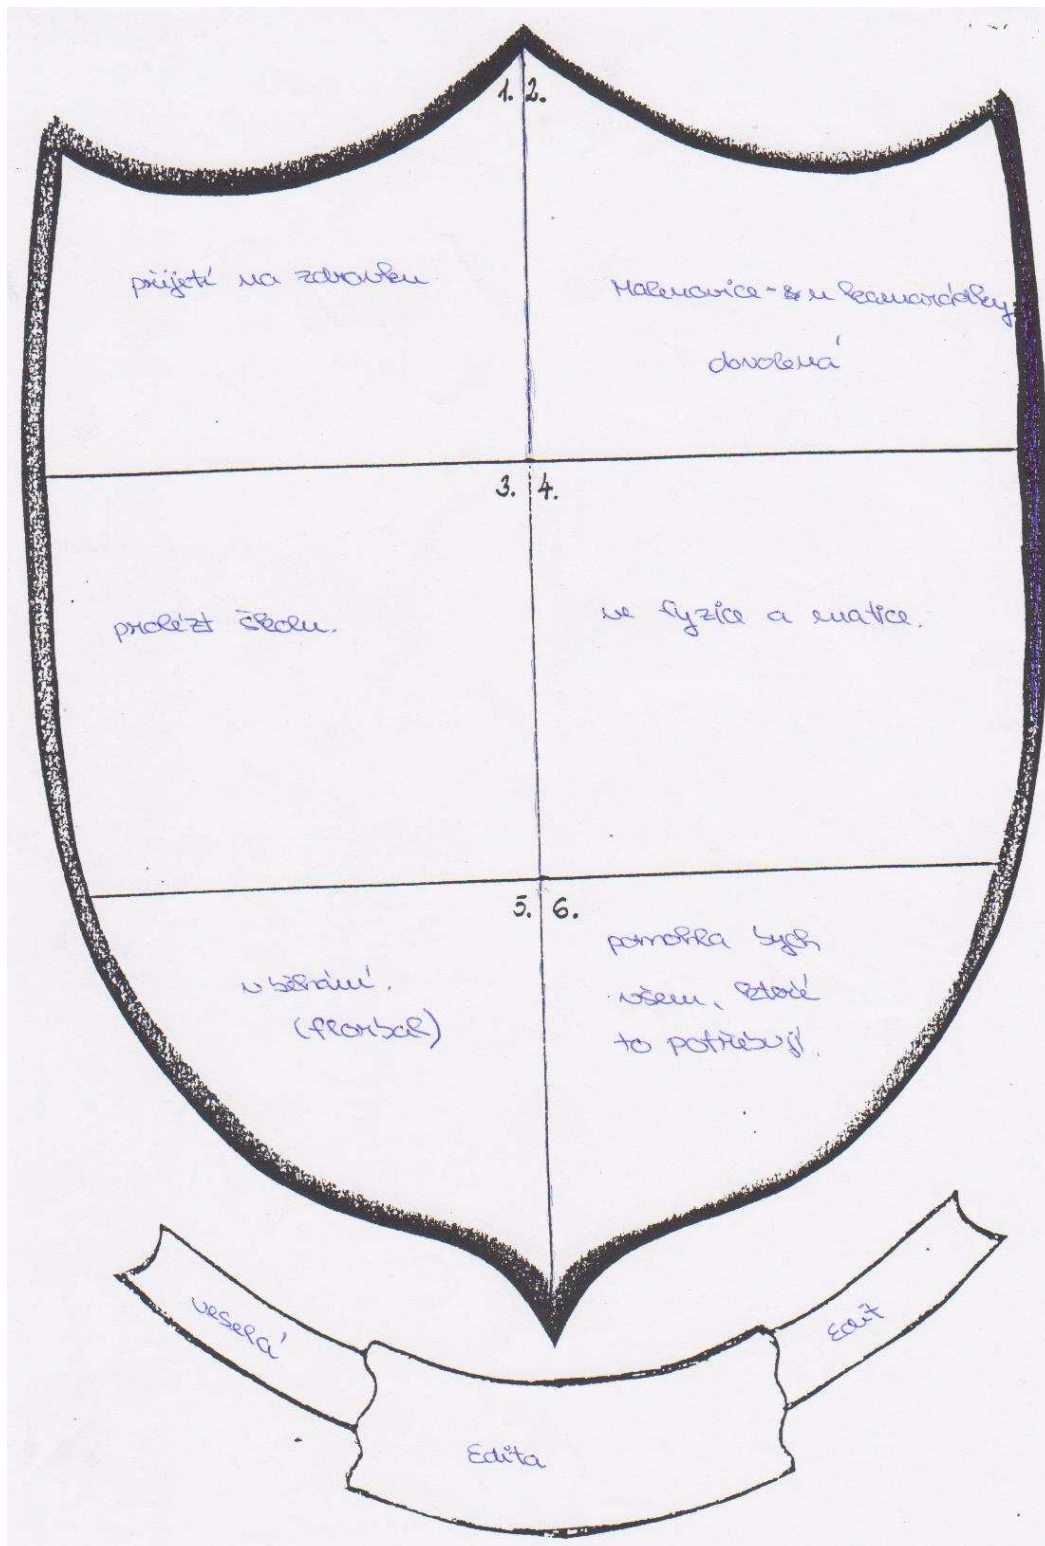 1. 2.
přijetí na zdravku
Malenovice - u kamarádky
dovolená
3. 4.
prolézt školu.
ve fyzice a matice.
5. 6.
v běhání.
(florbal)
pomohla bych
všem, které
to potřebují.
veselá
Edit
Edita